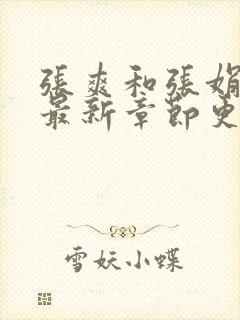 張爽和張娟
最新章節更
雪妖小蝶